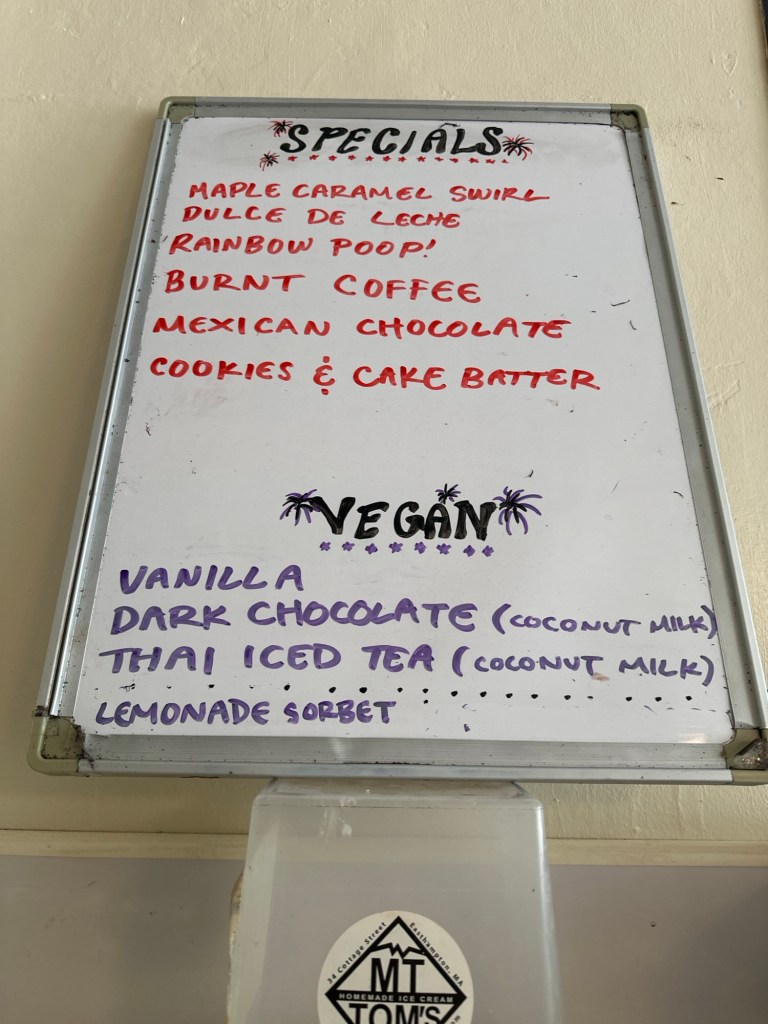 SPECIALS
MAPLE CARAMEL SWIRL
DULCE DE LECHE
RAINBOW POOP!
BURNT COFFEE
MEXICAN CHOCOLATE
COOKIES & CAKE BATTER
VEGAN
VANILLA
DARK CHOCOLATE (COCONUT MILK)
THAI ICED TEA (COCONUT MILK)
LEMONADE SORBET
34 Cottage Street
Easthampton, MA
MT
HOMEMADE ICE CREAM
TOM'S